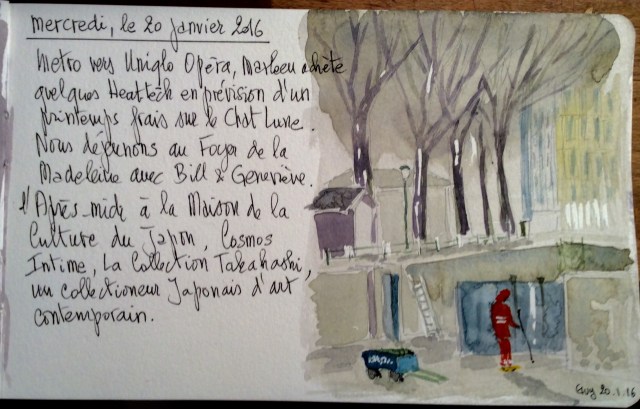 mercredi, le 20 janvier 2016
Metro vers Uniqlo Opéra, Marleen achète
quelques Heattech en prévision d'un
printemps frais sur le Chat Lune.
Nous déjeunons au Foyer de la
Madeleine avec Bill & Geneviève.
l'Après-midi à la Maison de la
Culture du Japon, Cosmos
Intime, La Collection Takahashi,
un collectioneur Japonais d'art
contemporain.
20.1.16